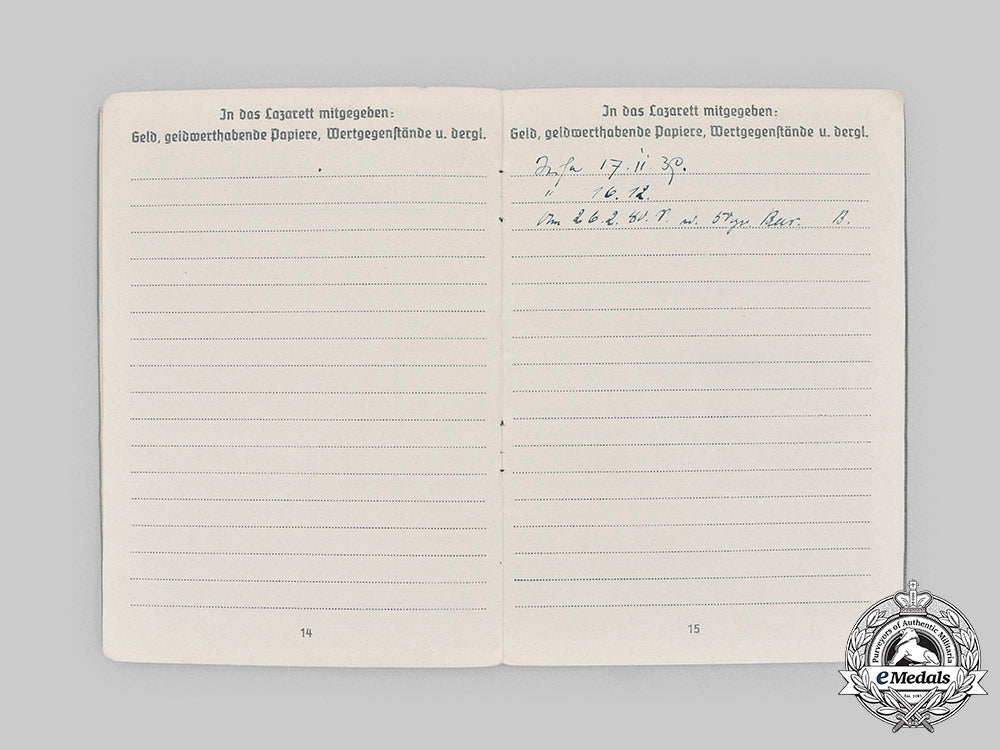 In das Lazarett mitgegeben:
Geld, geldwerthabende Papiere, Wertgegenstände u. dergl.
14
In das Lazarett mitgegeben:
Geld, geldwerthabende Papiere, Wertgegenstände u. dergl.
17. 11. 39.
" 16. 12.
26. 2. 40. B.
15
Purveyors of Authentic Militaria
eMedals